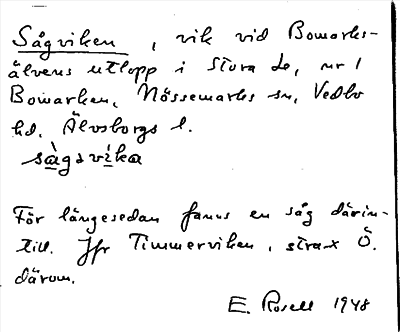 Sågviken, vik vid Bowarks-
älvens utlopp i Stora Le, nr 1
Bowarken, Nössemarks sn, Vedbo
hd. Älvsborgs l.
sàgsvika
För längesedan fanns en såg därin-
till. Jfr Timmerviken, strax Ö.
därom.
E. Rosell 1948